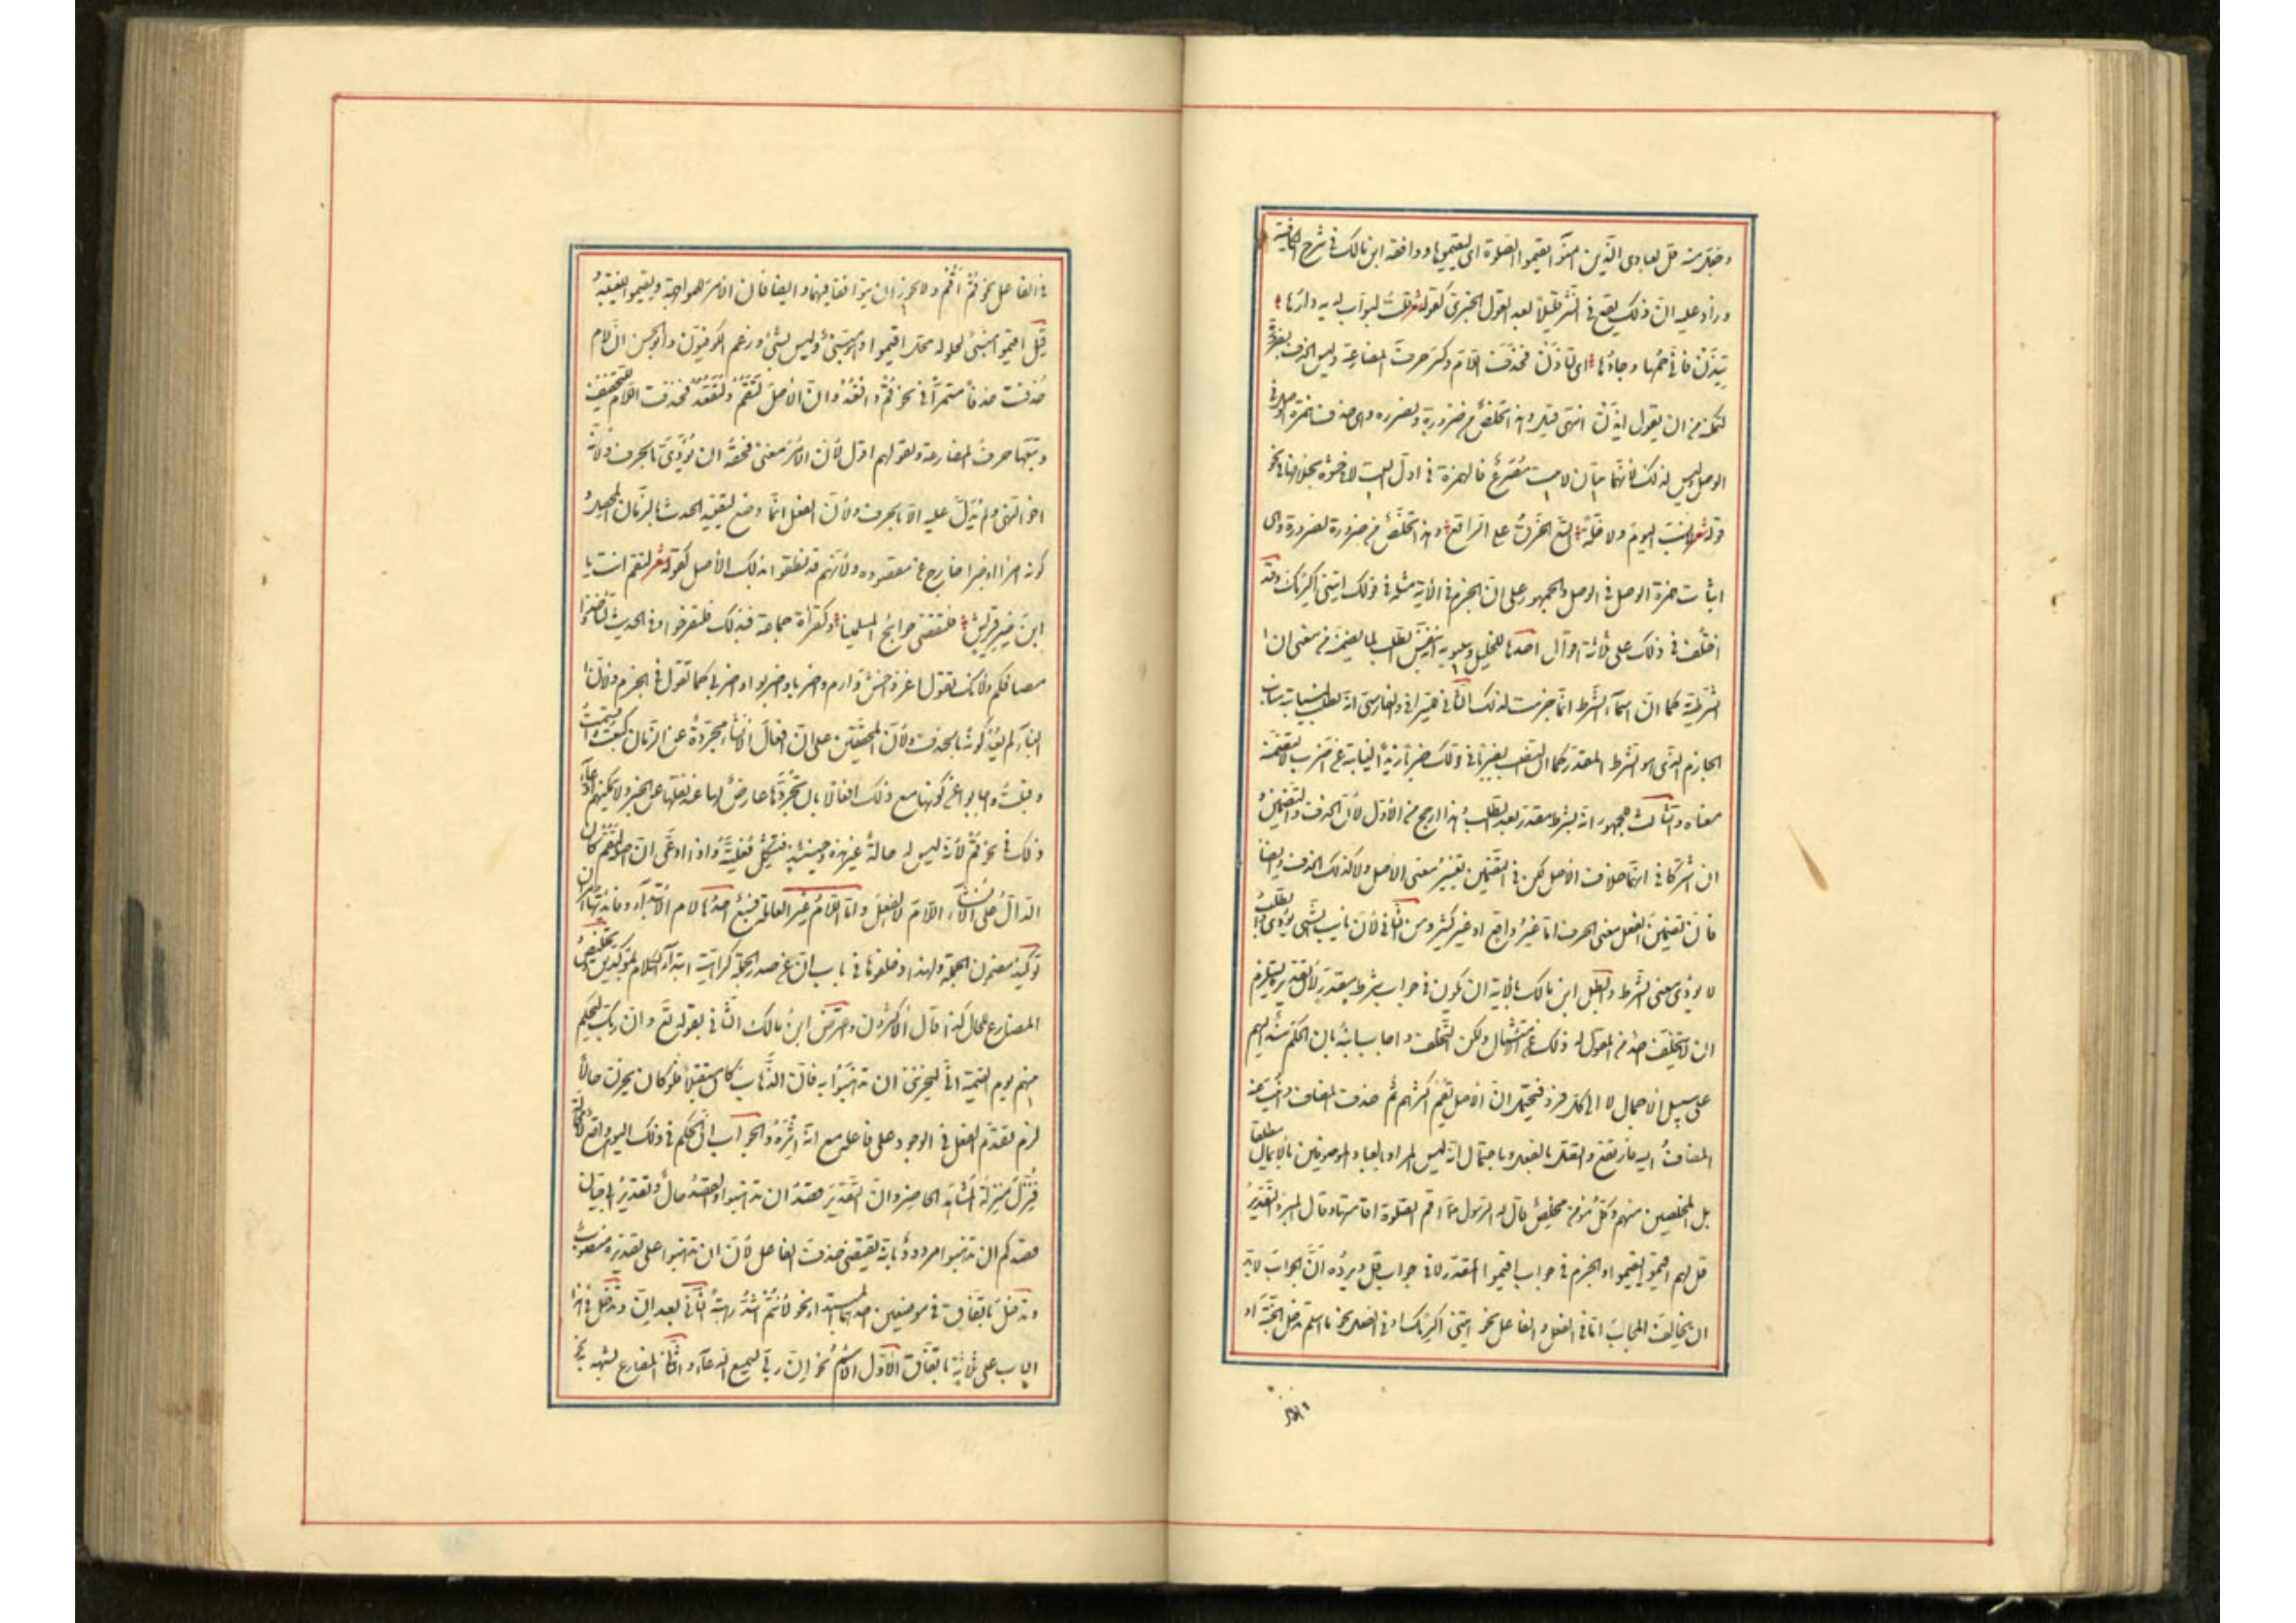 وجعل منه قل لعبادي الذين امنوا يقيموا الصلوة اي ليقيموها ووافقه ابن مالك في شرح الكافية
وزاد عليه ان ذلك يقع في النثر قليلا بعد القول الخبري كقوله شعر قلت لبواب لديه دارها
تيذن فاني حمها وجارها اي لتأذن فحذف اللام وكسر حرف المضارعة وليس الحذف بضرورة
لتمكنه من ان يقول ايذن انتهى قيل وهذا تخلص من ضرورة بضرورة وهي همزة
الوصل وليس لذلك لانهما بيتان لا بيت مصرع فالهمزة في اول البيت لا في حشوه بخلافها في نحو
قوله شعر لا نسب اليوم ولا خلة اتسع الخرق على الراقع وهذا تخلص من ضرورة لضرورة وهي
اثبات همزة الوصل في الوصل والجمهور على ان الجزم في الآية مثله في قولك ايتني اكرمك وقد
اختلف في ذلك على ثلثة اقوال احدها للخليل وسيبويه انه بنفس الطلب لما تضمنه من معنى ان
الشرطية كما ان اسماء الشرط انما جزمت لذلك الثاني للسيرافي والفارسي انه بالطلب لنيابته مناب
الجازم الذي هو الشرط المقدر كما ان النصب بضربا في قولك ضربا زيدا لنيابته عن اضرب لا لتضمنه
معناه والثالث للجمهور انه بشرط مقدر بعد الطلب وهذا ارجح من الاول لان الحذف والتضمين و
ان اشتركا في انهما خلاف الاصل لكن في التضمين تغيير معنى الاصل ولا كذلك الحذف وايضا
فان تضمين الفعل معنى الحرف اما غير واقع او غير كثير ومن الثاني لان نايب الشيء يؤدي معناه والطلب
لا يؤدي معنى الشرط وابطل ابن مالك بالآية ان يكون في جواب شرط مقدر لان تقديره يستلزم
ان لا يتخلف احد من المقول له ذلك عن الامتثال ولكن التخلف واقع واجاب ابنه بان الحكم مسند اليهم
على سبيل الاجمال لا الى كل فرد فيحتمل ان الاصل يقم اكثرهم ثم حذف المضاف وانيب عنه
المضاف اليه فارتفع واتصل بالفعل وباحتمال انه ليس المراد بالعباد الموصوفين بالايمان مطلقا
بل المخلصين منهم وكل مؤمن مخلص قال له الرسول اقم الصلوة اقامها وقال المبرد التقدير
قل لهم اقيموا يقيموا والجزم في جواب اقيموا المقدر لا في جواب قل ويرده ان الجواب لا بد
ان يخالف المجاب اما في الفعل والفاعل نحو ايتني اكرمك او في الفعل نحو اسلم تدخل الجنة او
في الفاعل نحو قم اقم ولا يجوز ان يتوافقا فيهما وايضا فان الامر للمواجهة ويقيموا للغيبة
قيل اقيموا مبني لحلوله محل اقيموا وهو مبني وليس بشيء وزعم الكوفيون وابو الحسن ان لام
حذفت حذفا مستمرا في نحو قم واقعد وان الاصل لتقم ولتقعد فحذفت اللام للتخفيف
وتبعها حرف المضارعة وبقولهم اقول لان الامر معنى فحقه ان يؤدى بالحرف ولانه
اخو النهي ولم يدل عليه الا بالحرف ولان الفعل انما وضع لتقييد الحدث بالزمان المحصل و
كونه امرا او خبرا خارج عن مقصوده ولانهم قد نطقوا بذلك الأصل كقوله شعر لتقم انت يا
ابن خير قريش فلتقضي حوائج المسلمينا وكقراءة جماعة فبذلك فلتفرحوا وفي الحديث لتأخذوا
مصافكم ولانك تقول اغز واخش وارم واضربا واضربوا واضربي كما تقول في الجزم ولان
البناء لم يعهد كونه بالحذف ولان المحققين على ان افعال الانشاء مجردة عن الزمان كبعت واقسمت
وقبلت واجابوا عن كونها مع ذلك افعالا بان تجردها عارض لها عند نقلها عن الخبر ولا يمكنهم ادعاء
ذلك في نحو قم لانه ليس له حالة غير هذه وحينئذ فتشكل فعليته واذا ادعى ان اصله لتقم كان
الدال على الانشاء اللام لا الفعل واما اللام غير العاملة فسبع احدها لام الابتداء وفائدتها امران
توكيد مضمون الجملة ولهذا زحلقوها في باب ان عن صدر الجملة كراهية ابتداء الكلام بمؤكدين وتخليص
المضارع للحال كذا قال الاكثرون واعترض ابن مالك الثاني بقوله تع وان ربك ليحكم
بينهم يوم القيمة اني ليحزنني ان تذهبوا به فان الذهاب كان مستقبلا فلو كان يحزن حالا
لزم تقدم الفعل في الوجود على فاعله مع انه اثره والجواب ان الحكم في ذلك اليوم واقع لا محالة
فنزل منزلة المشاهد الحاضر وان التقدير قصد ان تذهبوا والقصد حال وتقدير ابي حيان
قصدكم ان تذهبوا مردود بانه يقتضي حذف الفاعل لان ان تذهبوا على تقديره منصوب
وتدخل باتفاق في موضعين احدهما المبتدأ نحو لانتم اشد رهبة الثاني بعد ان وتدخل في هذا
الباب على ثلاثة باتفاق الاول الاسم نحو ان ربي لسميع الدعاء والثاني المضارع لشبهه به نحو